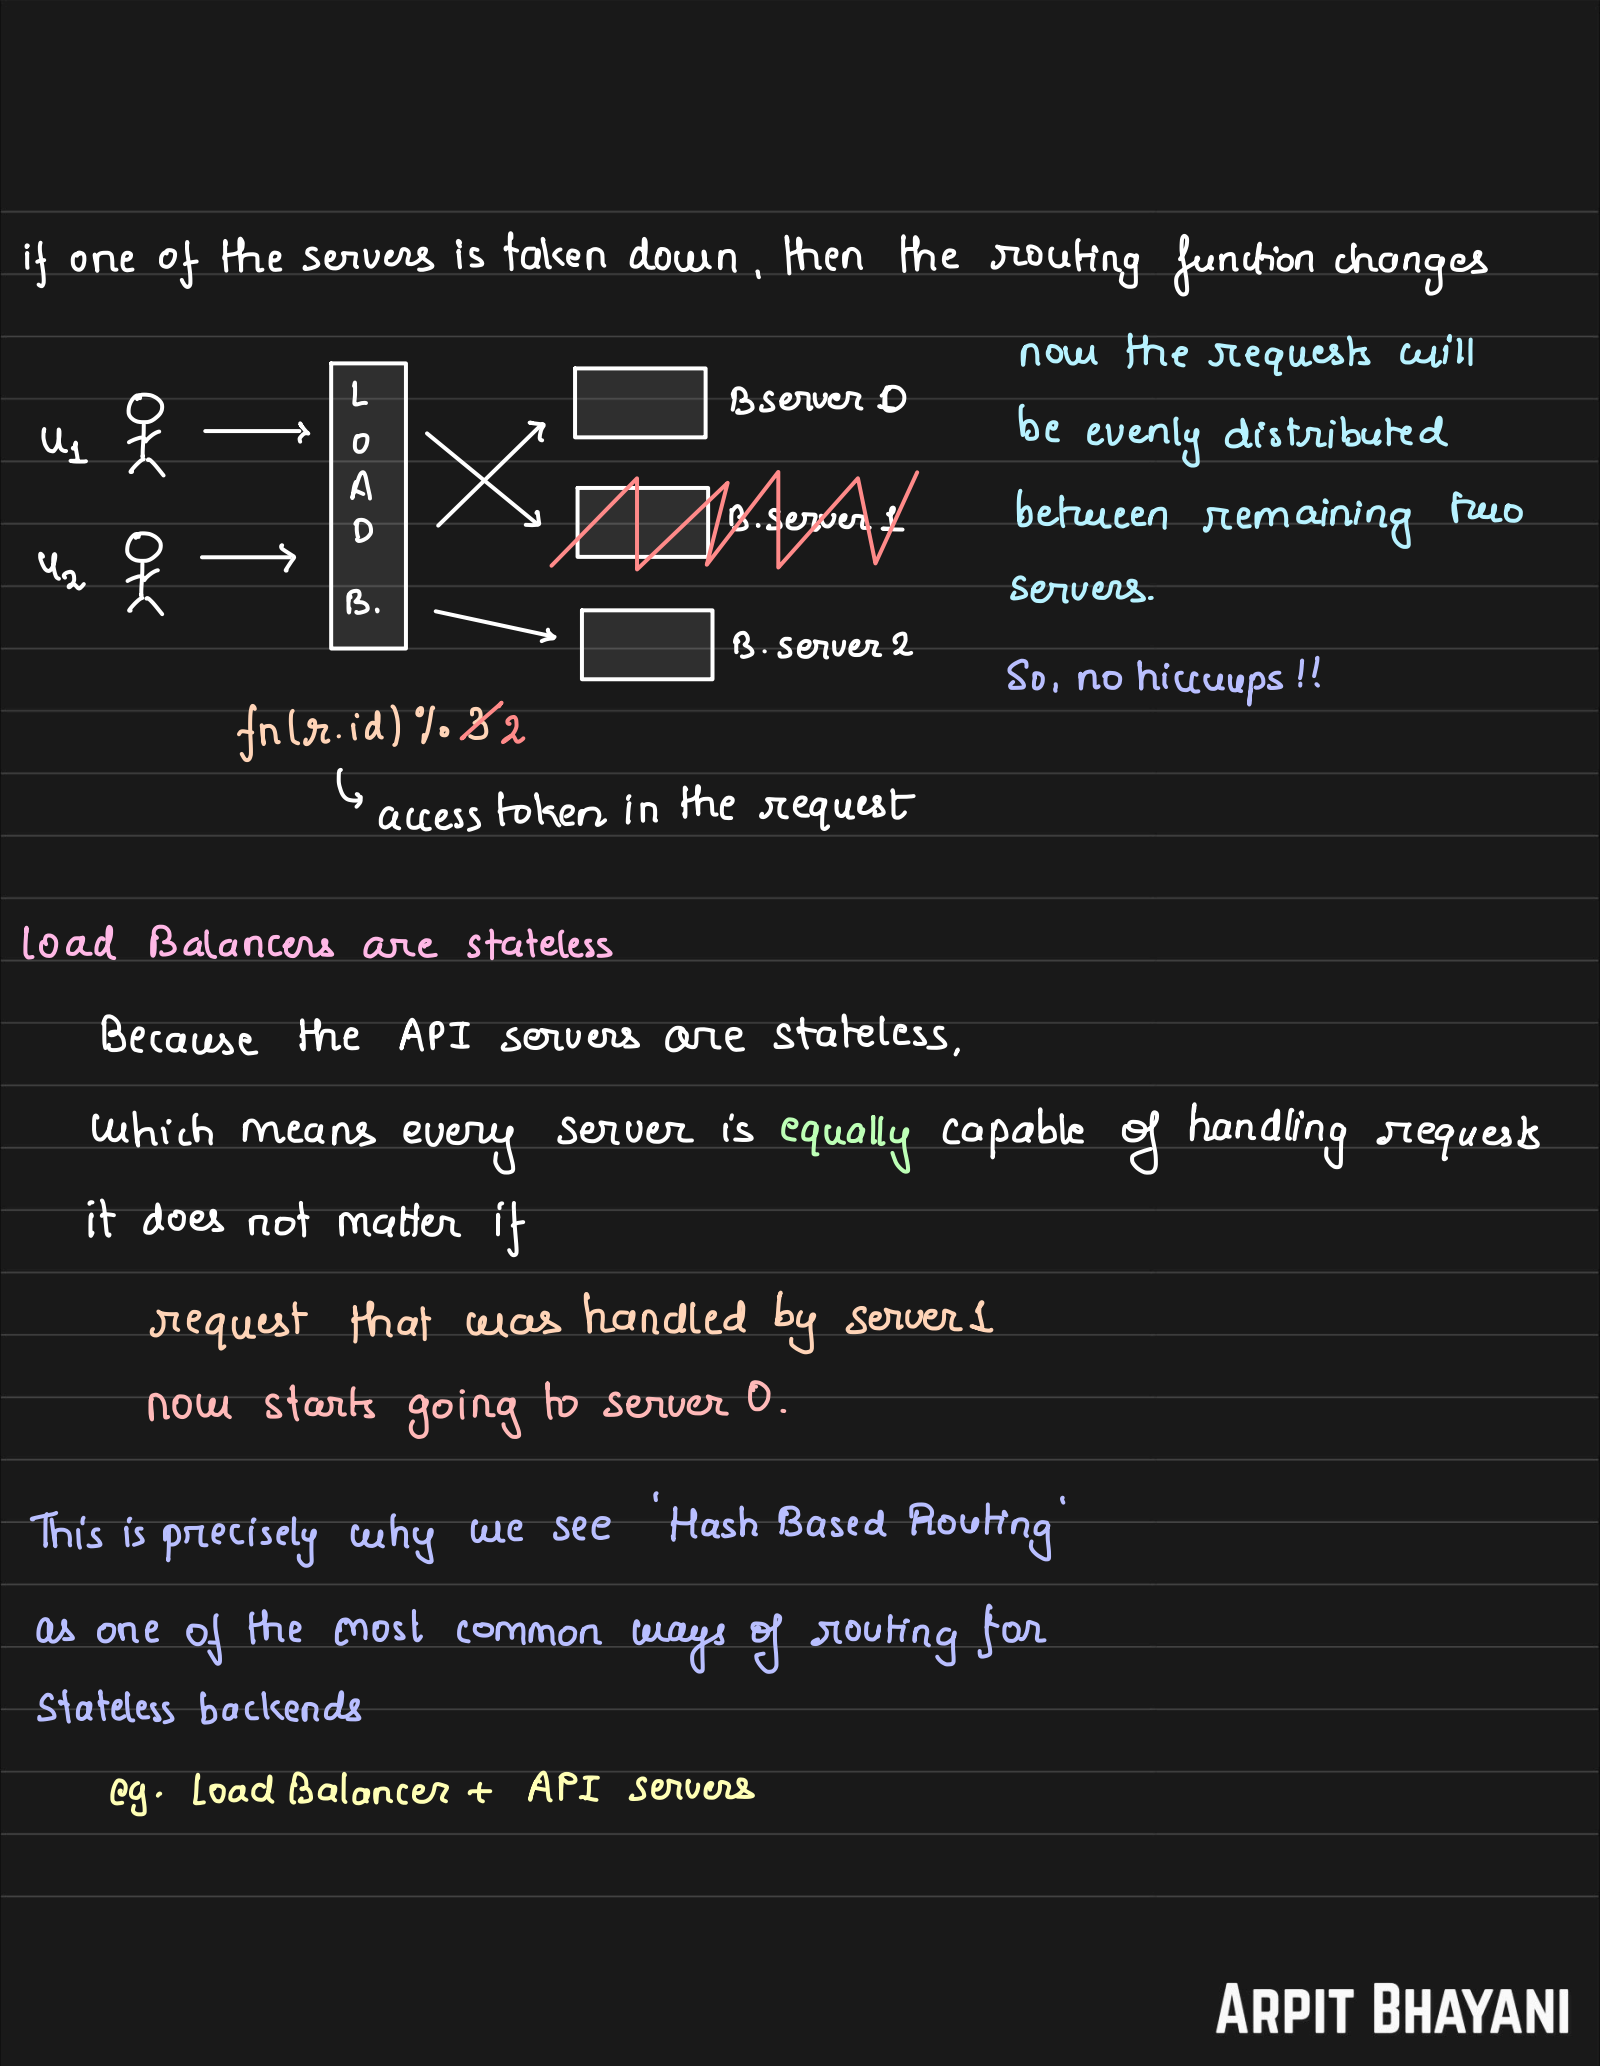 if one of the servers is taken down, then the routing function changes
now the requests will
be evenly distributed
between remaining two
servers.
So, no hiccups!!
u1
u2
L
O
A
D
B.
B server 0
B. server 1
B. server 2
fn(r.id) % 3 2
access token in the request
Load Balancers are stateless
Because the API servers are stateless,
which means every server is equally capable of handling requests
it does not matter if
request that was handled by server 1
now starts going to server 0.
This is precisely why we see 'Hash Based Routing'
as one of the most common ways of routing for
Stateless backends
eg. Load Balancer + API servers
ARPIT BHAYANI